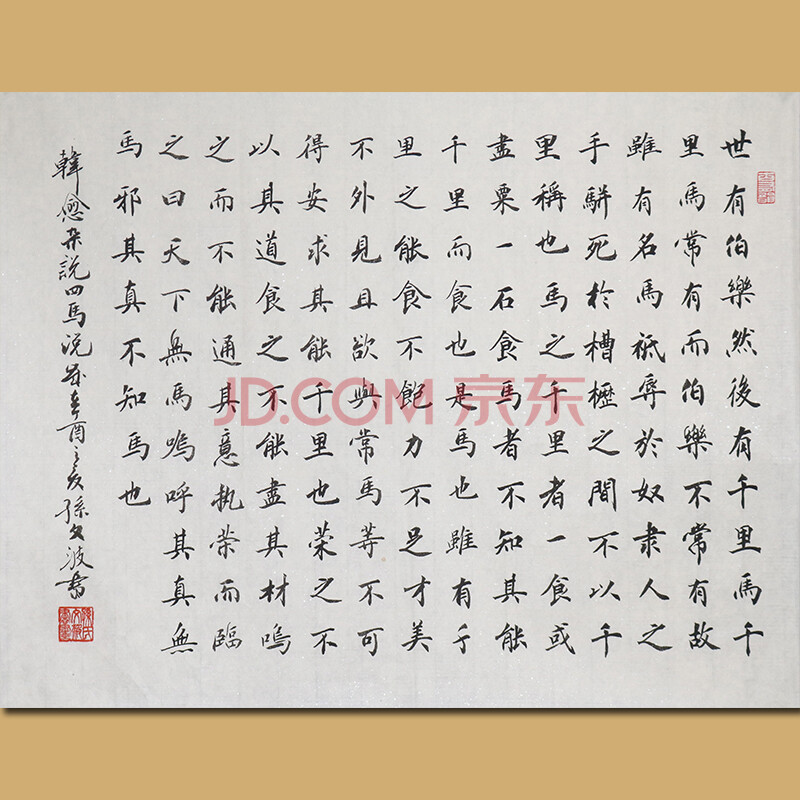 世有伯樂然後有千里馬千
里馬常有而伯樂不常有故
雖有名馬祇辱於奴隸人之
手駢死於槽櫪之間不以千
里稱也馬之千里者一食或
盡粟一石食馬者不知其能
千里而食也是馬也雖有千
里之能食不飽力不足才美
不外見且欲與常馬等不可
得安求其能千里也策之不
以其道食之不能盡其材鳴
之而不能通其意執策而臨
之曰天下無馬嗚呼其真無
馬邪其真不知馬也
韓愈杂説四馬说歲辛酉之夏孫文波書
JD.COM 京东